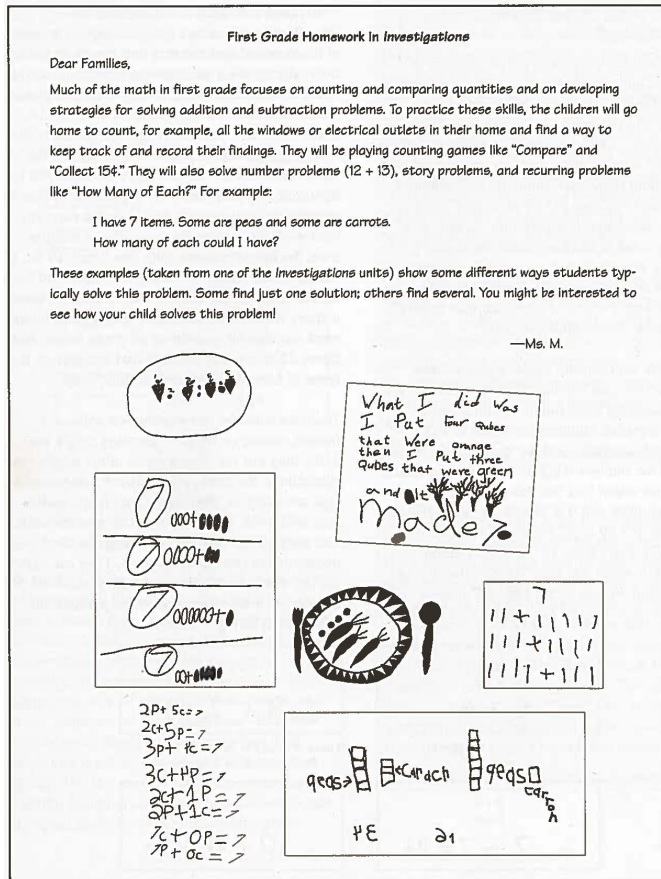 First Grade Homework in Investigations
Dear Families,
Much of the math in first grade focuses on counting and comparing quantities and on developing
strategies for solving addition and subtraction problems. To practice these skills, the children will go
home to count, for example, all the windows or electrical outlets in their home and find a way to
keep track of and record their findings. They will be playing counting games like “Compare” and
“Collect 15¢.” They will also solve number problems (12 + 13), story problems, and recurring problems
like “How Many of Each?” For example:
I have 7 items. Some are peas and some are carrots.
How many of each could I have?
These examples (taken from one of the Investigations units) show some different ways students typ-
ically solve this problem. Some find just one solution; others find several. You might be interested to
see how your child solves this problem!
—Ms. M.
What I did was
I Put four qubes
that were orange
then I Put three
Qubes that were green
and it
made 7.
7 000+
7 0000+
7 000000+
7 00+
7
11+11111
111+1111
1111+111
2p+5c=7
2c+5p=7
3p+4c=7
3c+4p=7
2c+1p=7
2p+1c=7
7c+0p=7
7p+0c=7
qeas
qeas